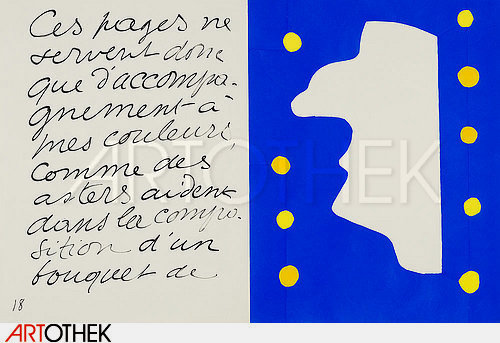 Ces pages ne
servent donc
que d'accompa-
gnement à
mes couleurs,
comme des
asters aident
dans la compo-
sition d'un
bouquet de
18
ARTOTHEK
ARTOTHEK